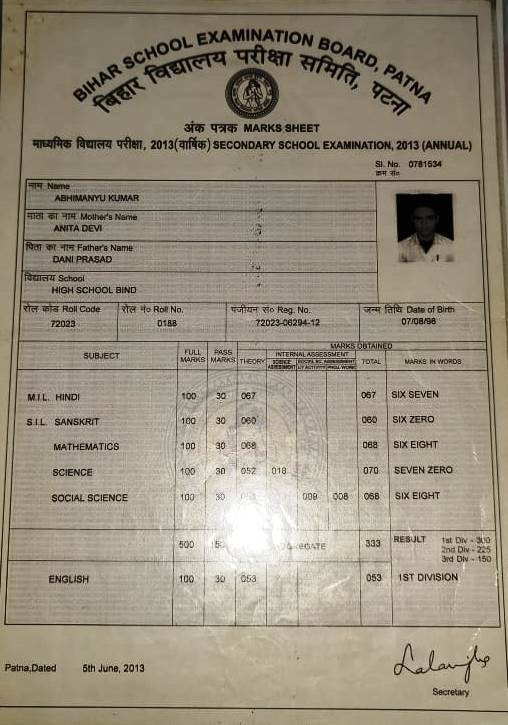 BIHAR SCHOOL EXAMINATION BOARD, PATNA
बिहार विद्यालय परीक्षा समिति, पटना
अंक पत्रक MARKS SHEET
माध्यमिक विद्यालय परीक्षा, 2013(वार्षिक) SECONDARY SCHOOL EXAMINATION, 2013 (ANNUAL)
Sl. No. 0781534
क्रम सं०
नाम Name
ABHIMANYU KUMAR
माता का नाम Mother's Name
ANITA DEVI
पिता का नाम Father's Name
DANI PRASAD
विद्यालय School
HIGH SCHOOL BIND
रोल कोड Roll Code रोल नं० Roll No. पंजीयन सं० Reg. No. जन्म तिथि Date of Birth
72023 0188 72023-06294-12 07/08/98
MARKS OBTAINED
SUBJECT FULL MARKS PASS MARKS THEORY INTERNAL ASSESSMENT TOTAL MARKS IN WORDS
SCIENCE ASSESSMENT SOCIAL SC. ASSESSMENT
LIT ACTIVITY PROJ. WORK
M.I.L. HINDI 100 30 067 067 SIX SEVEN
S.I.L. SANSKRIT 100 30 060 060 SIX ZERO
MATHEMATICS 100 30 068 068 SIX EIGHT
SCIENCE 100 30 052 018 070 SEVEN ZERO
SOCIAL SCIENCE 100 30 009 008 068 SIX EIGHT
500 333 RESULT 1st Div - 300
2nd Div - 225
3rd Div - 150
ENGLISH 100 30 053 053 1ST DIVISION
Patna,Dated 5th June, 2013
Secretary